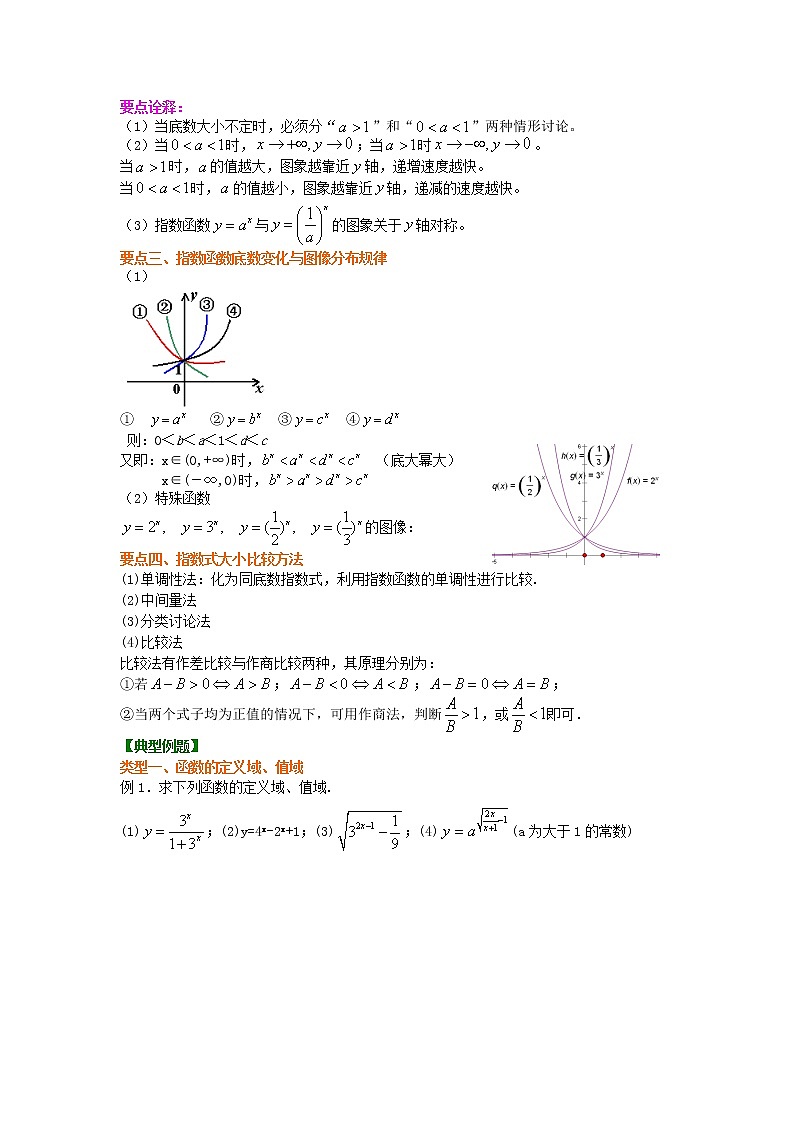 要点诠释:
(1)当底数大小不定时，必须分“a>1”和“0<a<1”两种情形讨论。
(2)当0<a<1时，x→+∞,y→0；当a>1时x→−∞,y→0。
当a>1时，a的值越大，图象越靠近y轴，递增速度越快。
当0<a<1时，a的值越小，图象越靠近y轴，递减的速度越快。
(3)指数函数y=a^x与y=(1/a)^x的图象关于y轴对称。
要点三、指数函数底数变化与图像分布规律
(1)
① ② y ③ ④
1
0 x
① y=a^x ②y=b^x ③y=c^x ④y=d^x
则:0＜b＜a＜1＜d＜c
又即:x∈(0,+∞)时，b^x<a^x<d^x<c^x （底大幂大）
x∈(－∞,0)时，b^x>a^x>d^x>c^x
(2)特殊函数
y=2^x, y=3^x, y=(1/2)^x, y=(1/3)^x的图像:
6
h(x)=(1/3)^x
4
g(x)=3^x
q(x)=(1/2)^x f(x)=2^x
2
-5
要点四、指数式大小比较方法
(1)单调性法:化为同底数指数式，利用指数函数的单调性进行比较.
(2)中间量法
(3)分类讨论法
(4)比较法
比较法有作差比较与作商比较两种，其原理分别为:
①若A−B>0⇔A>B；A−B<0⇔A<B；A−B=0⇔A=B；
②当两个式子均为正值的情况下，可用作商法，判断A/B>1,或A/B<1即可.
【典型例题】
类型一、函数的定义域、值域
例1.求下列函数的定义域、值域.
(1)y=3^x/(1+3^x);(2)y=4^x-2^x+1;(3)√(3^(2x−1)−1/9);(4)y=a^√(2x/(x+1)−1)(a为大于1的常数)